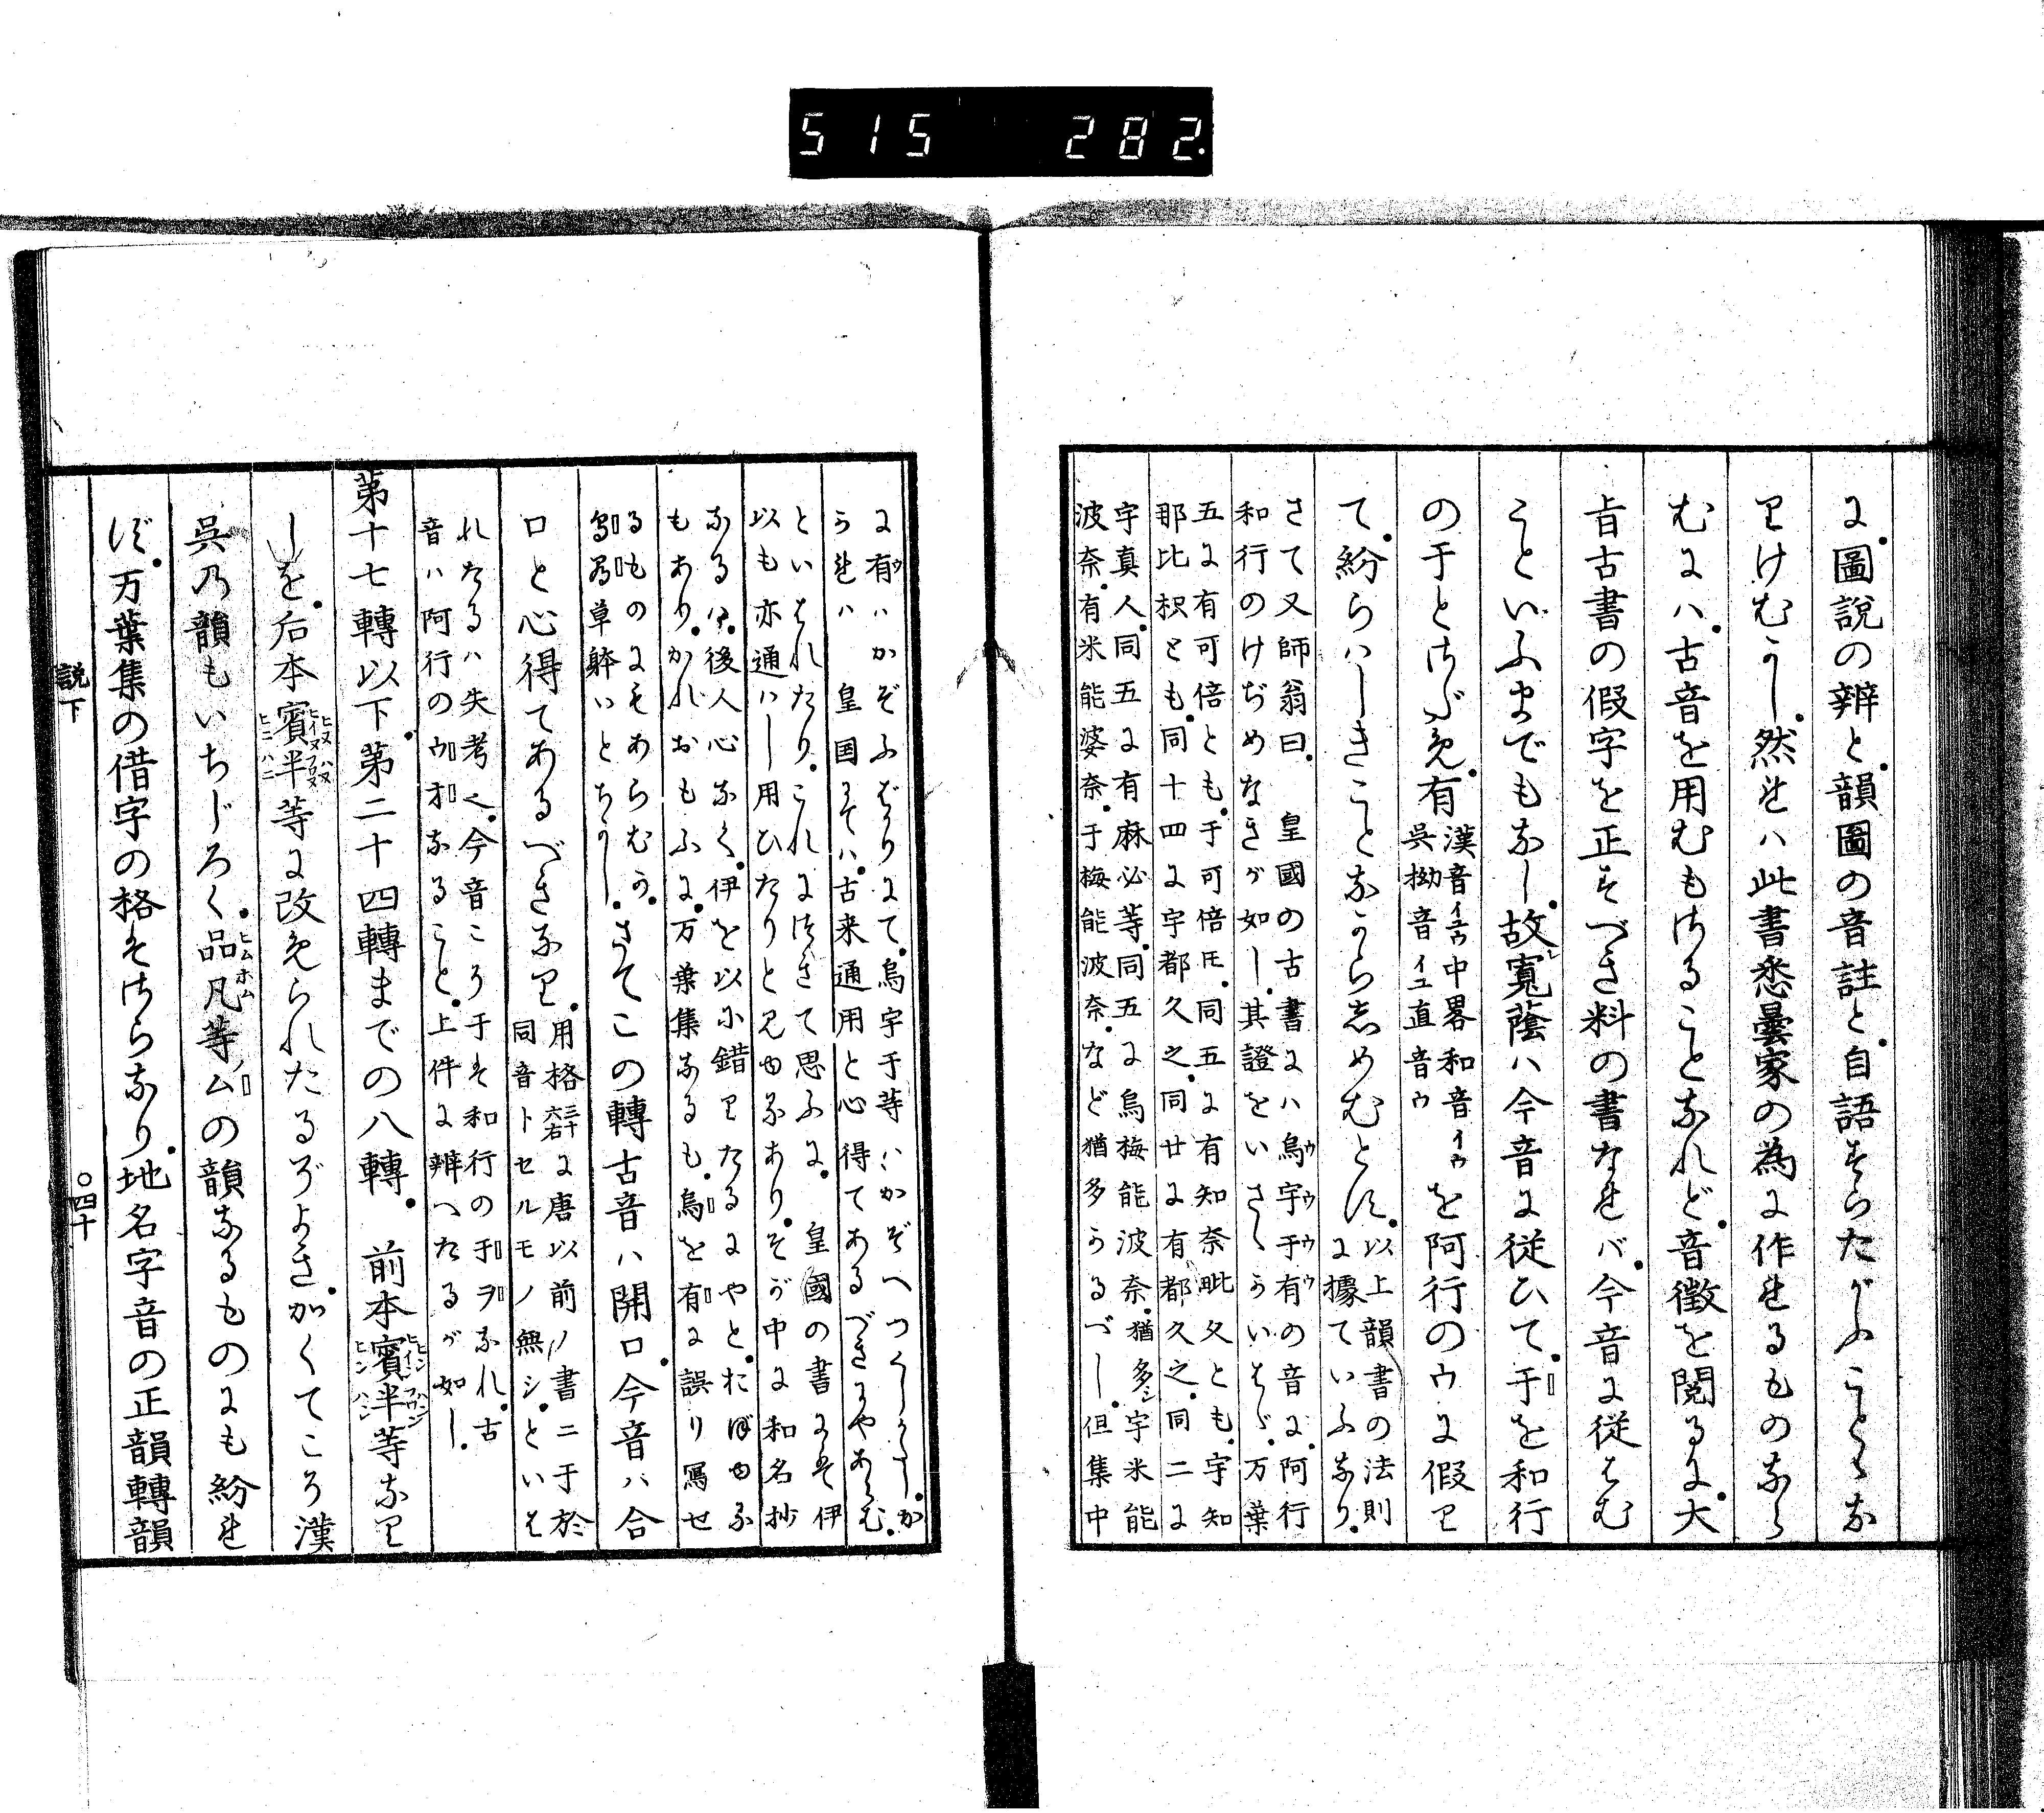 515 282
に圖説の辨と韻圖の音註と自語そらたがふことゝな
りけむかし然れハ此書悉曇家の為に作れるものなら
むにハ古音を用むもさることなれど音徴を閲るに大
旨古書の假字を正すべき料の書なれバ今音に従はむ
こといふまでもなし故寛蔭ハ今音に従ひて于を和行
の于とさだめ有漢音イユウ中畧和音イウ
呉拗音イユ直音ウを阿行のウに假り
て紛らハしきことなからしめむとす以上韻書の法則
に據ていふなり
さて又師翁曰 皇國の古書にハ烏宇于有の音に阿行
和行のけぢめなきが如し其證をいさゝかいはゞ万葉
五に有可倍とも于可倍氐同五に有知奈毗久とも宇知
那比枳とも同十四に宇都久之同廿に有都久之同二に
宇真人同五に有麻必等同五に烏梅能波奈猶多シ宇米能
波奈有米能婆奈于梅能波奈など猶多かるべし但集中
に有ハかぞふばかりにて烏宇于等ハかぞへつくしがたしか
かれハ 皇国にてハ古来通用と心得てあるべきにやあらむ
といはれたりこれにつきて思ふに 皇國の書にも伊
以も亦通ハし用ひたりと見ゆるありそが中に和名抄
なるハ後人心なく伊を以に錯りたるにやとおぼゆる
もありかれおもふに万葉集なるも烏を有に誤り寫せ
るものにもあらむか
烏有草躰いとちかしさてこの轉古音ハ開口今音ハ合
口と心得てあるべきなり用格三十六右に唐以前ノ書ニ于於
同音トセルモノ無シといは
れたるハ失考也今音こう于も和行の于ヲなれ古
音ハ阿行のウオなること上件に辨へたるが如し
第十七轉以下第二十四轉までの八轉 前本賓半等なり
しを后本賓半等に改められたるぞよきかくてこう漢
呉乃韻もいちじろく品凡等ノムの韻なるものにも紛れ
ず万葉集の借字の格もさらなり地名字音の正韻轉韻
説下 〇四十